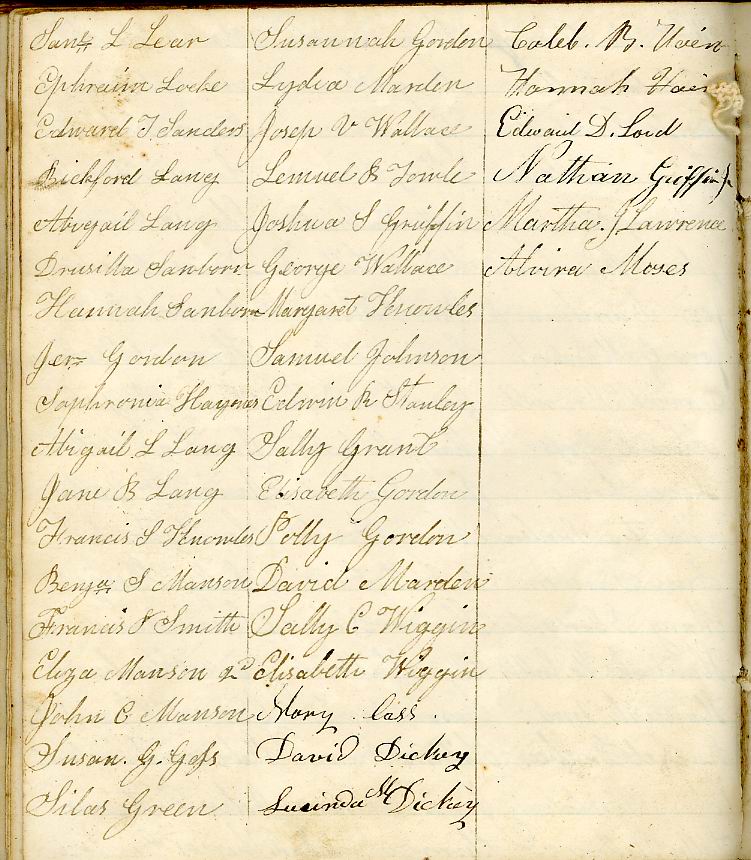 Saml L Lear
Ephraim Locke
Edward T Sanders
Bickford Lang
Abigail Lang
Drusilla Sanborn
Hannah Sanborn
Jere Gordon
Sophronia Haynes
Abigail L Lang
Jane B Lang
Francis S Knowles
Benja S Manson
Francis Smith
Eliza Manson 2d
John C Manson
Susan. G. Goss
Silas Green
Susannah Gordon
Lydia Marden
Josep V Wallace
Lemuel B Towle
Joshua S Griffin
George Wallace
Margaret Knowles
Samuel Johnson
Edwin R Stanley
Sally Grant
Elisabeth Gordon
Polly Gordon
David Marden
Sally C Wiggin
Elisabeth Wiggin
Mary Cass.
David Dickey
Lucinda M Dickey
Caleb. B.
Hannah
Edward D. Lord
Nathan Griffin
Martha J Lawrence
Alvira Moses